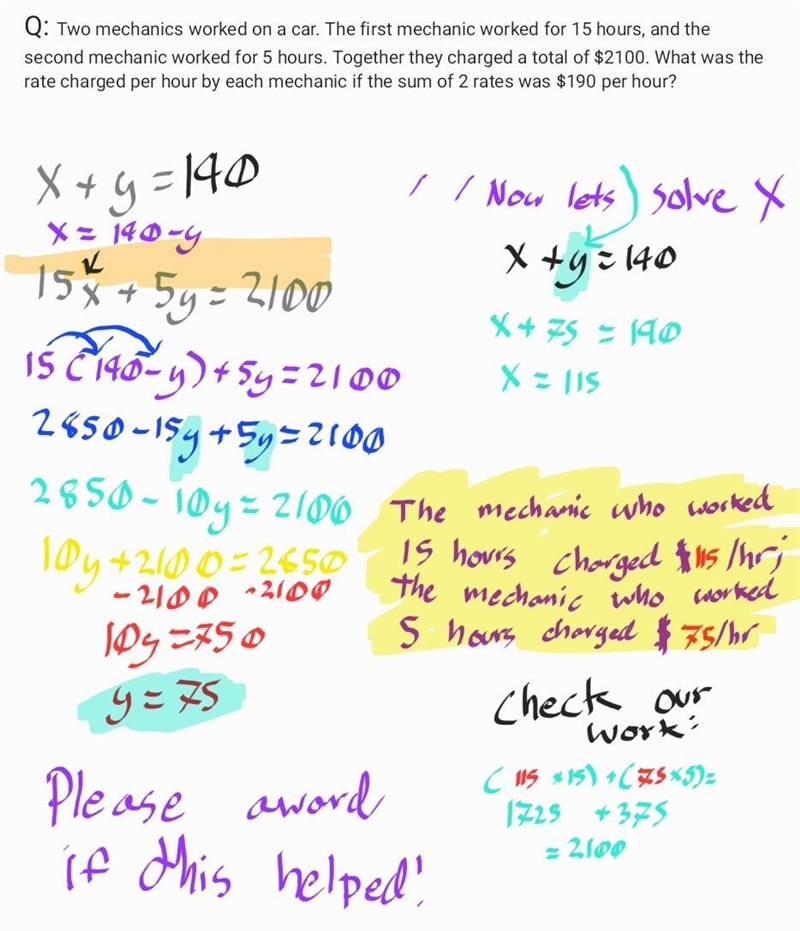 Q: Two mechanics worked on a car. The first mechanic worked for 15 hours, and the
second mechanic worked for 5 hours. Together they charged a total of $2100. What was the
rate charged per hour by each mechanic if the sum of 2 rates was $190 per hour?
x + y = 190
x = 190-y
15x + 5y = 2100
15 (190-y) + 5y = 2100
2850 - 15y + 5y = 2100
2850 - 10y = 2100
10y + 2100 = 2850
- 2100 - 2100
10y = 750
y = 75
Please aword
if this helped!
/ / Now lets ) solve X
x + y = 190
x + 75 = 190
x = 115
The mechanic who worked
15 hours charged $115/hr;
the mechanic who worked
5 hours charged $75/hr
Check our
work:
(115 x15) + (75x5)=
1725 + 375
= 2100